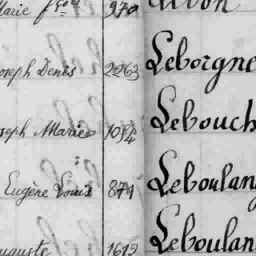 Marie 970
Joseph Denis 2263 Leborgne
Joseph Marie 1094 Lebouch
Eugène Louis 871 Leboulan
Auguste 1612 Leboulan